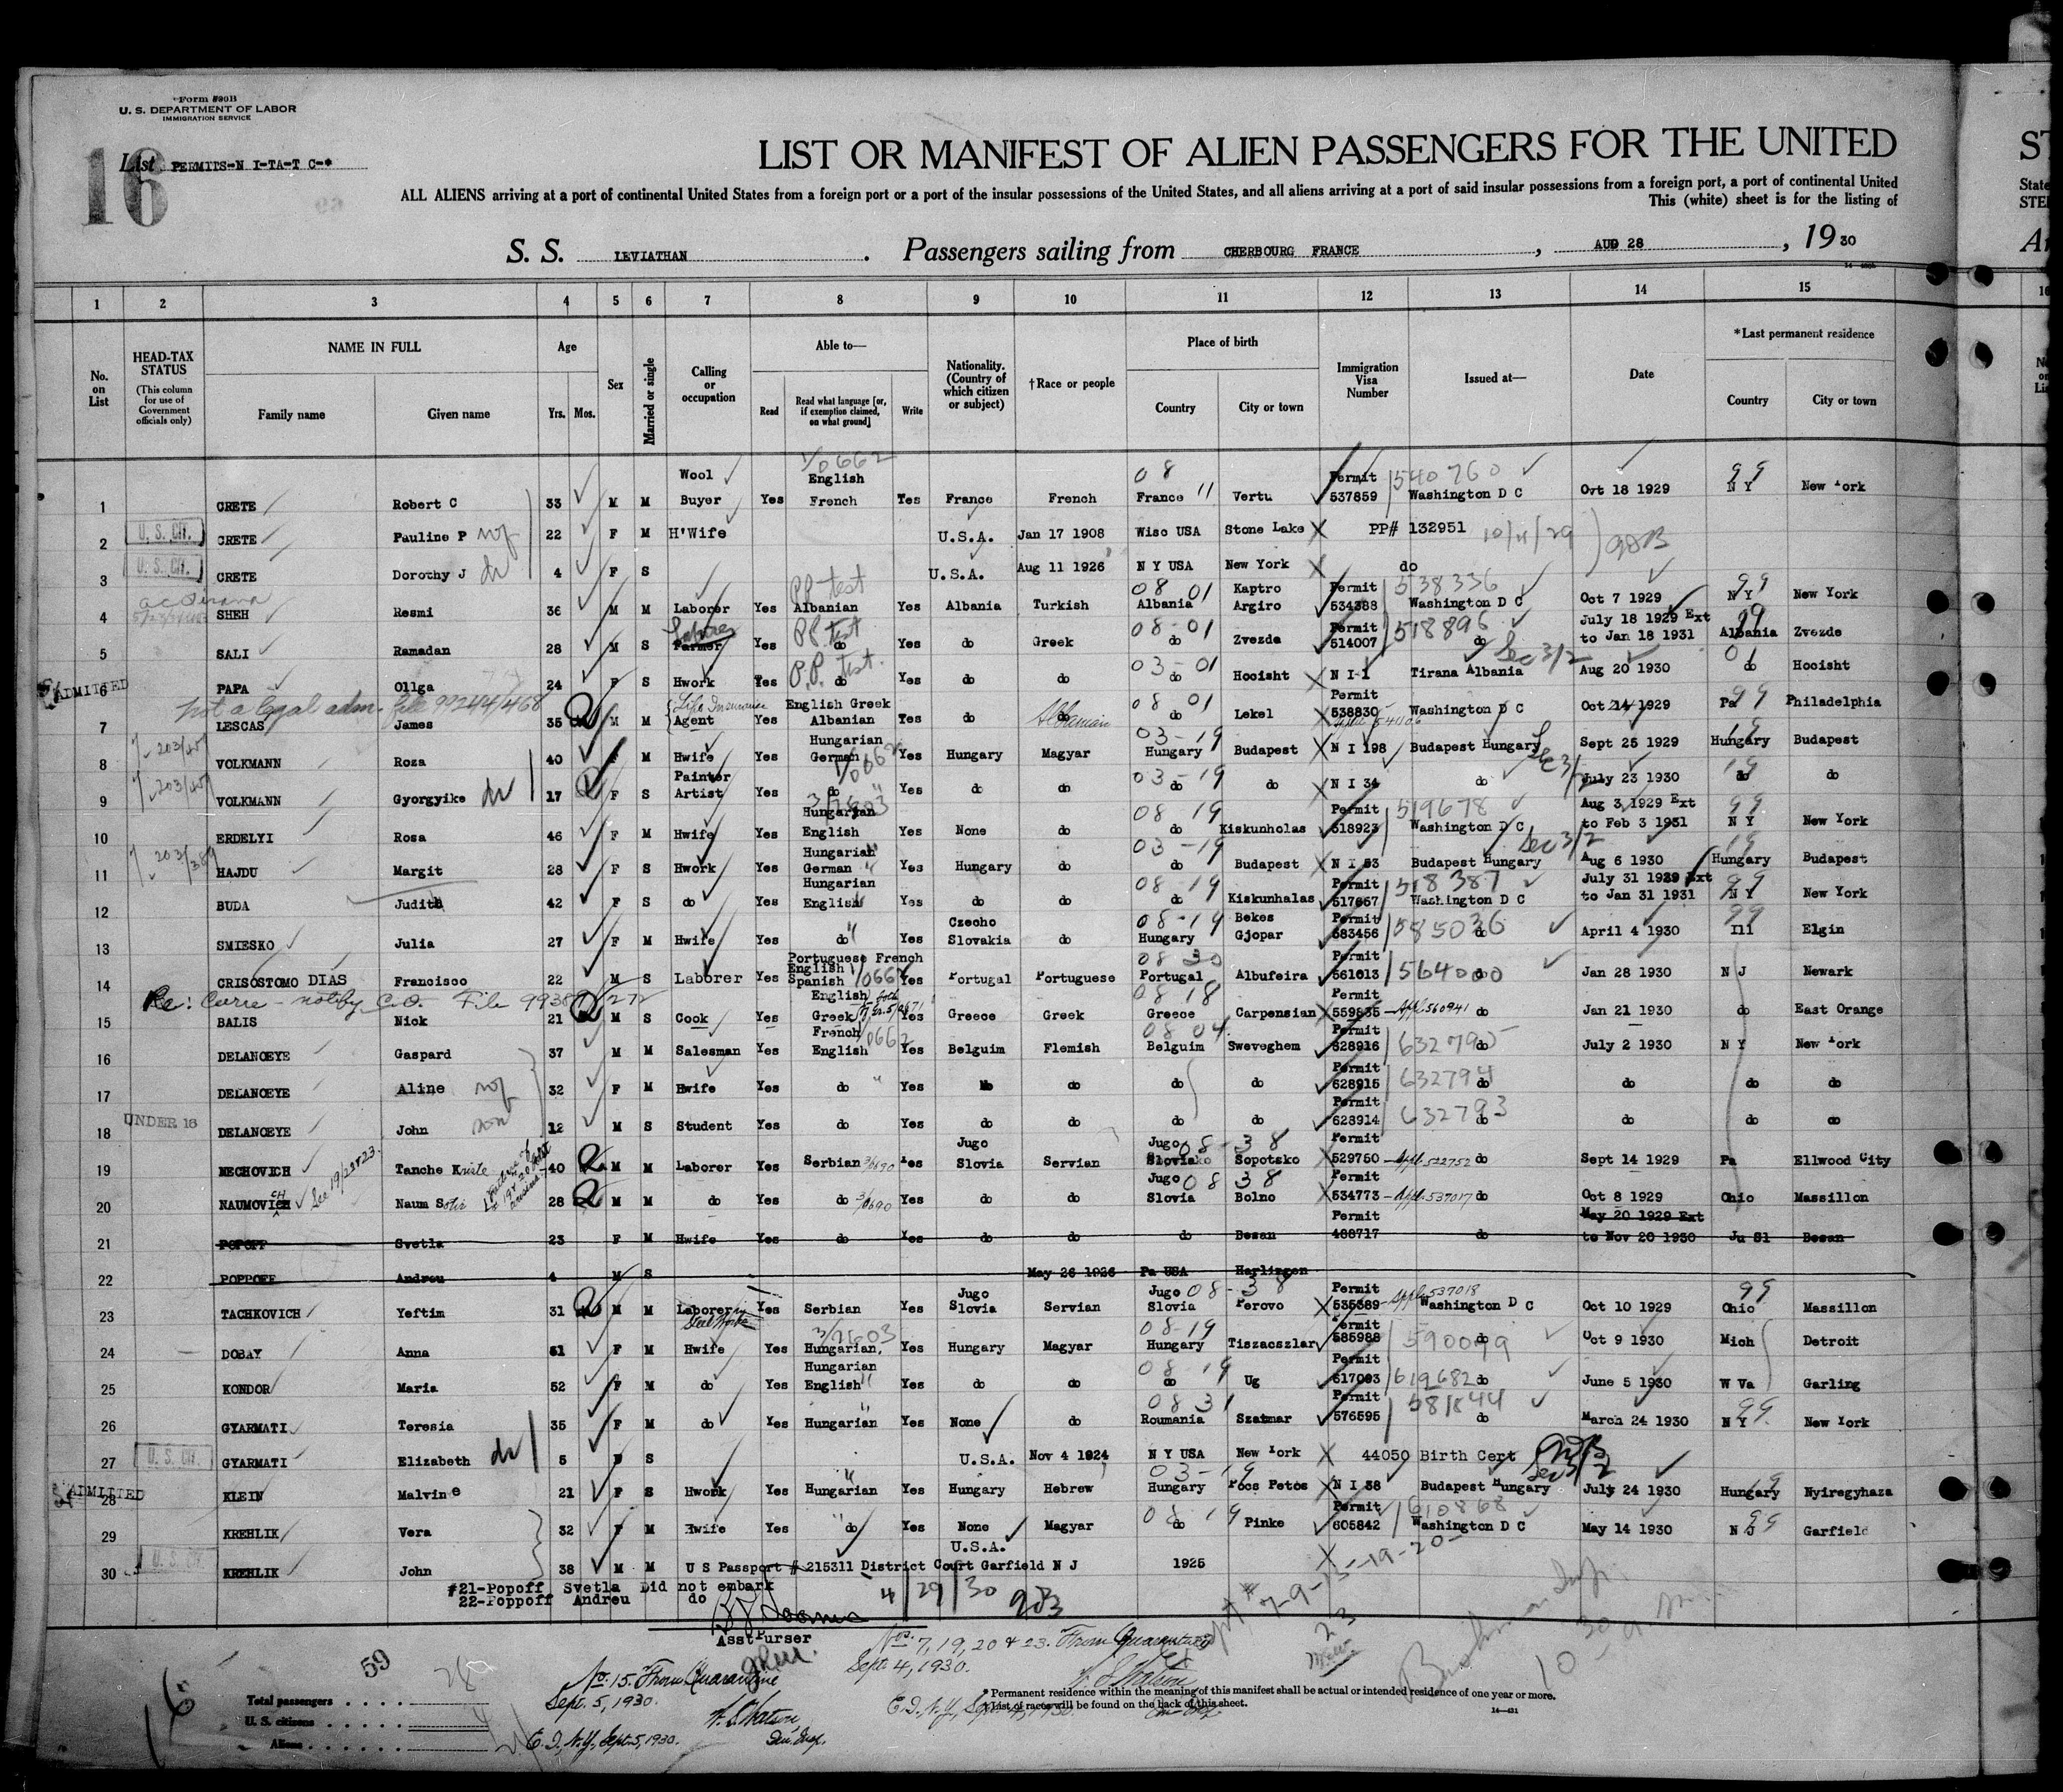 Form 500B
U. S. DEPARTMENT OF LABOR
IMMIGRATION SERVICE
16
List PERMITS-N I-TA-T C-*
LIST OR MANIFEST OF ALIEN PASSENGERS FOR THE UNITED
ALL ALIENS arriving at a port of continental United States from a foreign port or a port of the insular possessions of the United States, and all aliens arriving at a port of said insular possessions from a foreign port, a port of continental United
This (white) sheet is for the listing of
S. S. LEVIATHAN. Passengers sailing from CHERBOURG FRANCE, AUG 28, 1930
1 2 3 4 5 6 7 8 9 10 11 12 13 14 15
No. on List
HEAD-TAX STATUS (This column for use of Government officials only)
NAME IN FULL Family name Given name
Age Yrs. Mos.
Sex
Married or single
Calling or occupation
Able to— Read Read what language [or, if exemption claimed, on what ground] Write
Nationality. (Country of which citizen or subject)
†Race or people
Place of birth Country City or town
Immigration Visa Number
Issued at—
Date
*Last permanent residence Country City or town
1 CRETE Robert C 33 M M Wool Buyer Yes English French Yes France French France Vertu Permit 537859 540760 Washington D C Oct 18 1929 N Y New York
2 U. S. CIT. CRETE Pauline P wf 22 F M H'Wife U.S.A. Jan 17 1908 Wisc USA Stone Lake PP# 132951 10/11/29
3 U. S. CIT. CRETE Dorothy J dr 4 F S U.S.A. Aug 11 1926 N Y USA New York do
4 SHEH Resmi 36 M M Laborer Yes P.P. test Albanian Yes Albania Turkish 08 01 Albania Kaptro Argiro Permit 534388 538336 Washington D C Oct 7 1929 99 N Y New York
5 SALI Ramadan 28 M S Laborer Farmer Yes P.P. test do Yes do Greek 08-01 do Zvezda Permit 514007 518896 do July 18 1929 Ext to Jan 18 1931 Albania Zvezde
6 ADMITTED PAPA Ollga 24 F S Hwork Yes P.P. test. do Yes do do 03-01 do Hocisht N I-1 Tirana Albania Sec 3/2 Aug 20 1930 01 do Hocisht
not a legal adm. file 99244/468
7 LESCAS James 35 M M Life Insurance Agent Yes English Greek Albanian Yes do do Albanian 08 01 do Lekel Permit 538830 Washington D C Oct 14 1929 Pa 99 Philadelphia
8 VOLKMANN Roza 40 F M Hwife Yes Hungarian German Yes Hungary Magyar 03-19 Hungary Budapest N I 198 Budapest Hungary Sept 25 1929 Hungary Budapest
9 VOLKMANN Gyorgyike dr 17 F S Painter Artist Yes do Yes do do 03-19 do do N I 34 do July 23 1930 do do
10 ERDELYI Rosa 46 F M Hwife Yes Hungarian English Yes None do 08 19 do Kiskunholas Permit 518923 519678 Washington D C Aug 3 1929 Ext to Feb 3 1931 99 N Y New York
11 HAJDU Margit 28 F S Hwork Yes Hungarian German Yes Hungary do 03-19 do Budapest N I 53 Budapest Hungary Sec 3/2 Aug 6 1930 Hungary Budapest
12 BUDA Judith 42 F S do Yes Hungarian English Yes do do 08-19 do Kiskunhalas Permit 517667 518387 Washington D C July 31 1929 Ext to Jan 31 1931 N Y New York
13 SMIESKO Julia 27 F M Hwife Yes do Yes Czecho Slovakia do 08-19 Hungary Bekes Gjopar Permit 583456 585036 do April 4 1930 99 Ill Elgin
14 CRISOSTOMO DIAS Francisco 22 M S Laborer Yes Portuguese French English Spanish Yes Portugal Portuguese 08 30 Portugal Albufeira Permit 561013 564000 do Jan 28 1930 N J Newark
Re: Curre - notify C.O. File 9938
15 BALIS Nick 21 M S Cook Yes English Greek Yes Greece Greek 08 18 Greece Carpensian Permit 559535 Appl. 560941 do Jan 21 1930 do East Orange
16 DELANOEYE Gaspard 37 M M Salesman Yes French English Yes Belguim Flemish 08 04 Belguim Sweveghem Permit 628916 632795 do July 2 1930 N Y New York
17 DELANOEYE Aline wf 32 F M Hwife Yes do Yes do do do Permit 628915 632794 do do do do
18 UNDER 16 DELANOEYE John son 12 M S Student Yes do Yes do do do do Permit 628914 632793 do do do do
19 NECHOVICH Tanche Kriste 40 M M Laborer Yes Serbian Yes Jugo Slovia Servian Jugo 08-38 Slovia Sopotsko Permit 529750 Appl. 522752 do Sept 14 1929 Pa Ellwood City
20 NAUMOVICH See 19/22 & 23. Naum Sotir 28 M M do Yes do Yes do do Jugo 08 38 Slovia Bolno Permit 534773 Appl. 537017 do Oct 8 1929 Ohio Massillon
21 POPOFF Svetla 23 F M Hwife Yes do Yes do do do Besan Permit 488717 do May 20 1929 Ext to Nov 20 1930 Ju Sl Besan
22 POPPOFF Andreu 4 M S May 26 1926 Pa USA Harlingen
23 TACHKOVICH Yeftim 31 M M Laborer in Steel Works Yes Serbian Yes Jugo Slovia Servian Jugo 08-38 Slovia Perovo Permit 535389 Appl. 537018 Washington D C Oct 10 1929 99 Ohio Massillon
24 DOBAY Anna 51 F M Hwife Yes Hungarian, Yes Hungary Magyar 08-19 Hungary Tiszaczslar Permit 585988 590099 do Oct 9 1930 Mich Detroit
25 KONDOR Maria 52 F M do Yes Hungarian English Yes do do 08-19 do Ug Permit 617093 619682 do June 5 1930 W Va Garling
26 GYARMATI Teresia 35 F M do Yes Hungarian Yes None do 08 31 Roumania Szatmar Permit 576595 581844 do March 24 1930 99 N Y New York
27 U. S. CIT. GYARMATI Elizabeth dr 5 F S U.S.A. Nov 4 1924 N Y USA New York 44050 Birth Cert
28 ADMITTED KLEIN Malvine 21 F S Hwork Yes Hungarian Yes Hungary Hebrew 03-19 Hungary Poos Petos N I 38 Budapest Hungary Sec 3/2 July 24 1930 Hungary Nyiregyhaza
29 KREHLIK Vera 32 F M Hwife Yes do Yes None Magyar 08 19 do Pinke Permit 605842 610868 Washington D C May 14 1930 N J Garfield
30 U. S. CIT. KREHLIK John 38 M M U S Passport # 215311 District Court Garfield N J U.S.A. 1925
#21-Popoff Svetla Did not embark
22-Poppoff Andreu do
4/29/30
Asst Purser
59
Total passengers
U. S. citizens
Aliens
No. 15. From Quarantine
Sept. 5, 1930.
E. I., N.Y., Sept. 5, 1930.
Nos. 7, 19, 20 & 23. From Quarantine
Sept. 4, 1930.
* Permanent residence within the meaning of this manifest shall be actual or intended residence of one year or more.
† List of races will be found on the back of this sheet.
10 30 a.m.